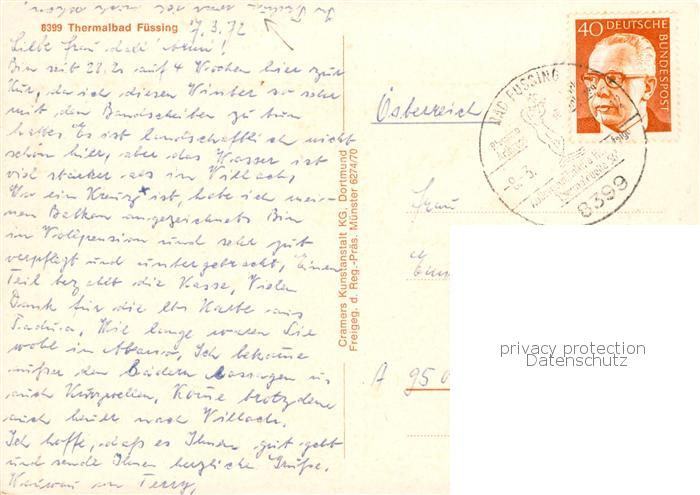 8399 Thermalbad Füssing 7.3.72
Liebe Frau
Bin seit 28.2. auf 4 Wochen hier zur
Kur, da ich diesen Winter so sehr
mit den Bandscheiben zu tun
hatte. Es ist landschaftlich nicht
schön hier, aber das Wasser ist
viel stärker als in Villach,
Wo ein Kreuz x ist, habe ich mei-
nen Balkon angezeichnet. Bin
in Vollpension und sehr gut
verpflegt und untergebracht, Einen
Teil bezahlt die Kasse, Vielen
Dank für die lb. Karte aus
Padua, Wie lange waren Sie
wohl in Abano, Ich bekomme
außer den Bädern Massagen u,
auch Kurzwellen, Komme trotzdem
auch heuer nach Villach.
Ich hoffe, daß es Ihnen gut geht
und sende Ihnen herzliche Grüße.
Terry,
Cramers Kunstanstalt KG, Dortmund
Freigeg. d. Reg.-Präs. Münster 6274/70
40 DEUTSCHE
BUNDESPOST
BAD FÜSSING
8399
Österreich
Frau
A 95
privacy protection
Datenschutz